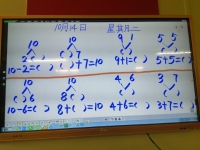 10月14日 星期二
10 10 9 1 5 5
2 ( ) ( ) 7 ( ) ( )
10-2=( ) ( )+7=10 9+1=( ) 5+5=( )
10 10 4 6 3 7
( ) 6 8 ( ) ( ) ( )
10-6=( ) 8+( )=10 4+6=( ) 3+7=( )